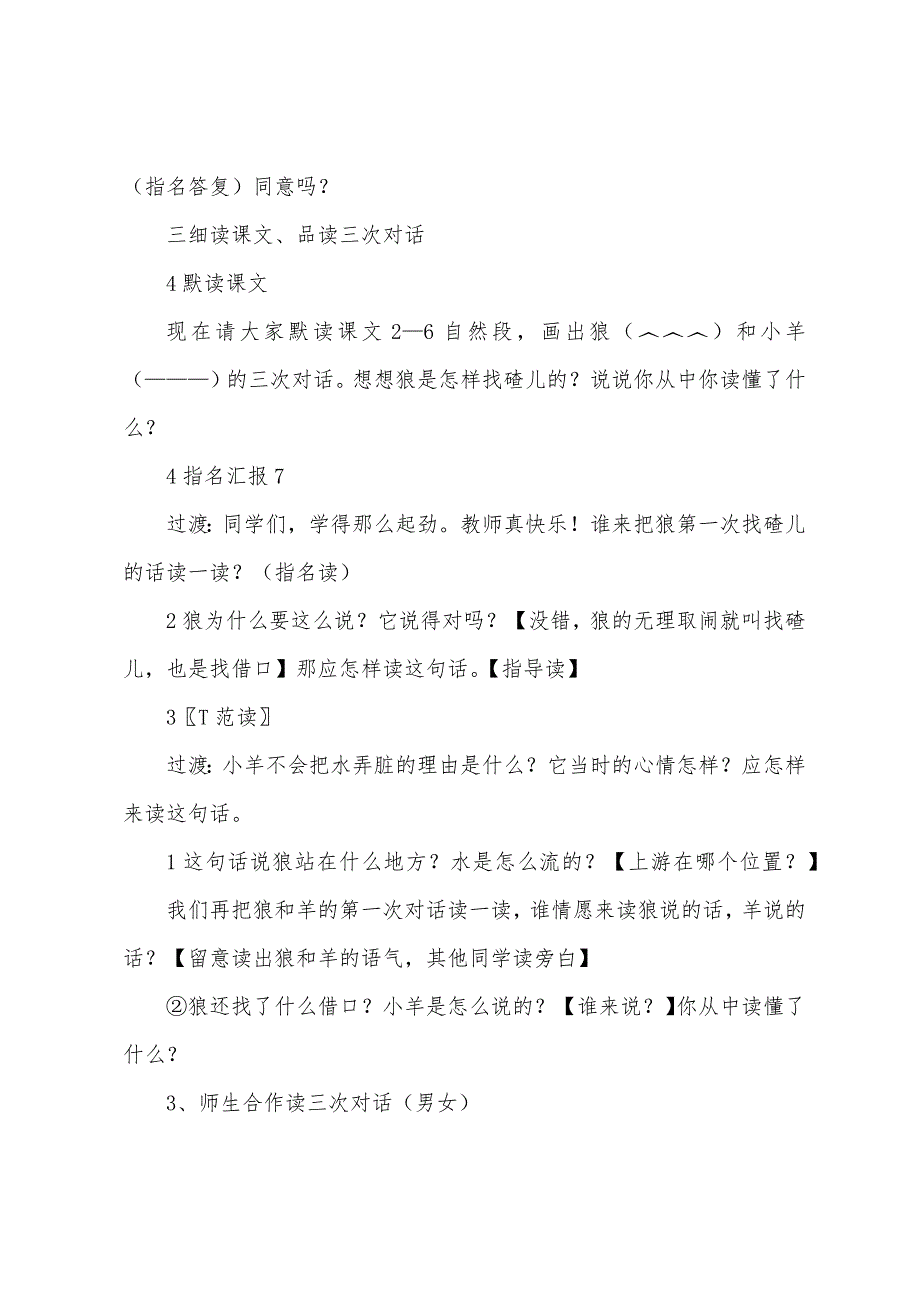 （指名答复）同意吗？
三细读课文、品读三次对话
4 默读课文
现在请大家默读课文 2—6 自然段，画出狼（︿︿︿）和小羊
（———）的三次对话。想想狼是怎样找碴儿的？说说你从中你读懂了什
么？
4 指名汇报 7
过渡：同学们，学得那么起劲。教师真快乐！谁来把狼第一次找碴儿
的话读一读？（指名读）
2 狼为什么要这么说？它说得对吗？【没错，狼的无理取闹就叫找碴
儿，也是找借口】那应怎样读这句话。【指导读】
3〖T 范读〗
过渡：小羊不会把水弄脏的理由是什么？它当时的心情怎样？应怎样
来读这句话。
1 这句话说狼站在什么地方？水是怎么流的？【上游在哪个位置？】
我们再把狼和羊的第一次对话读一读，谁情愿来读狼说的话，羊说的
话？【留意读出狼和羊的语气，其他同学读旁白】
②狼还找了什么借口？小羊是怎么说的？【谁来说？】你从中读懂了
什么？
3、师生合作读三次对话（男女）